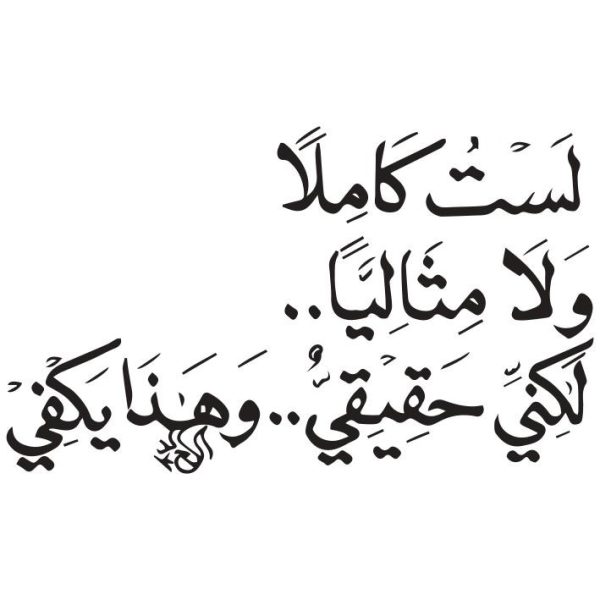 لَسْتُ كَامِلًا
وَلَا مِثَالِيًّا..
لَكِنِّي حَقِيْقِيٌّ.. وَهَـٰذَا يَكْفِيْ